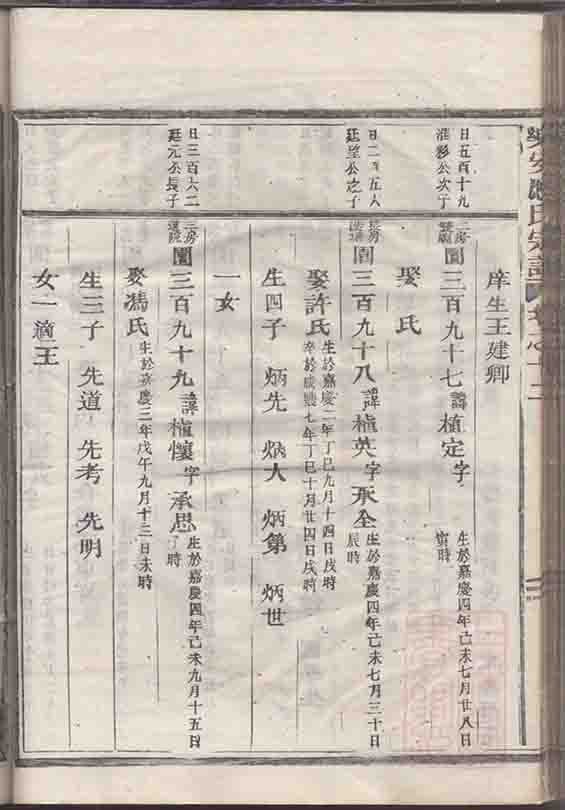 庠生王建卿
日五百十九
公次子
三百九十七 諱植定 字 生於嘉慶四年己未七月廿八日
寅時
娶 氏
日二百五八
廷望公之子
長房
三百九十八 諱植英 字 承全 生於嘉慶四年己未七月三十日
辰時
娶許氏 生於嘉慶二年丁巳九月十四日戌時
卒於咸豐七年丁巳十月廿四日戌時
生四子 炳先 炳大 炳第 炳世
一女
日三百六二
廷元公長子
三房
三百九十九 諱植懷 字 承思 生於嘉慶四年己未九月十五日
時
娶馮氏 生於嘉慶三年戊午九月十三日未時
生三子 先道 先考 先明
女一適王
氏宗譜